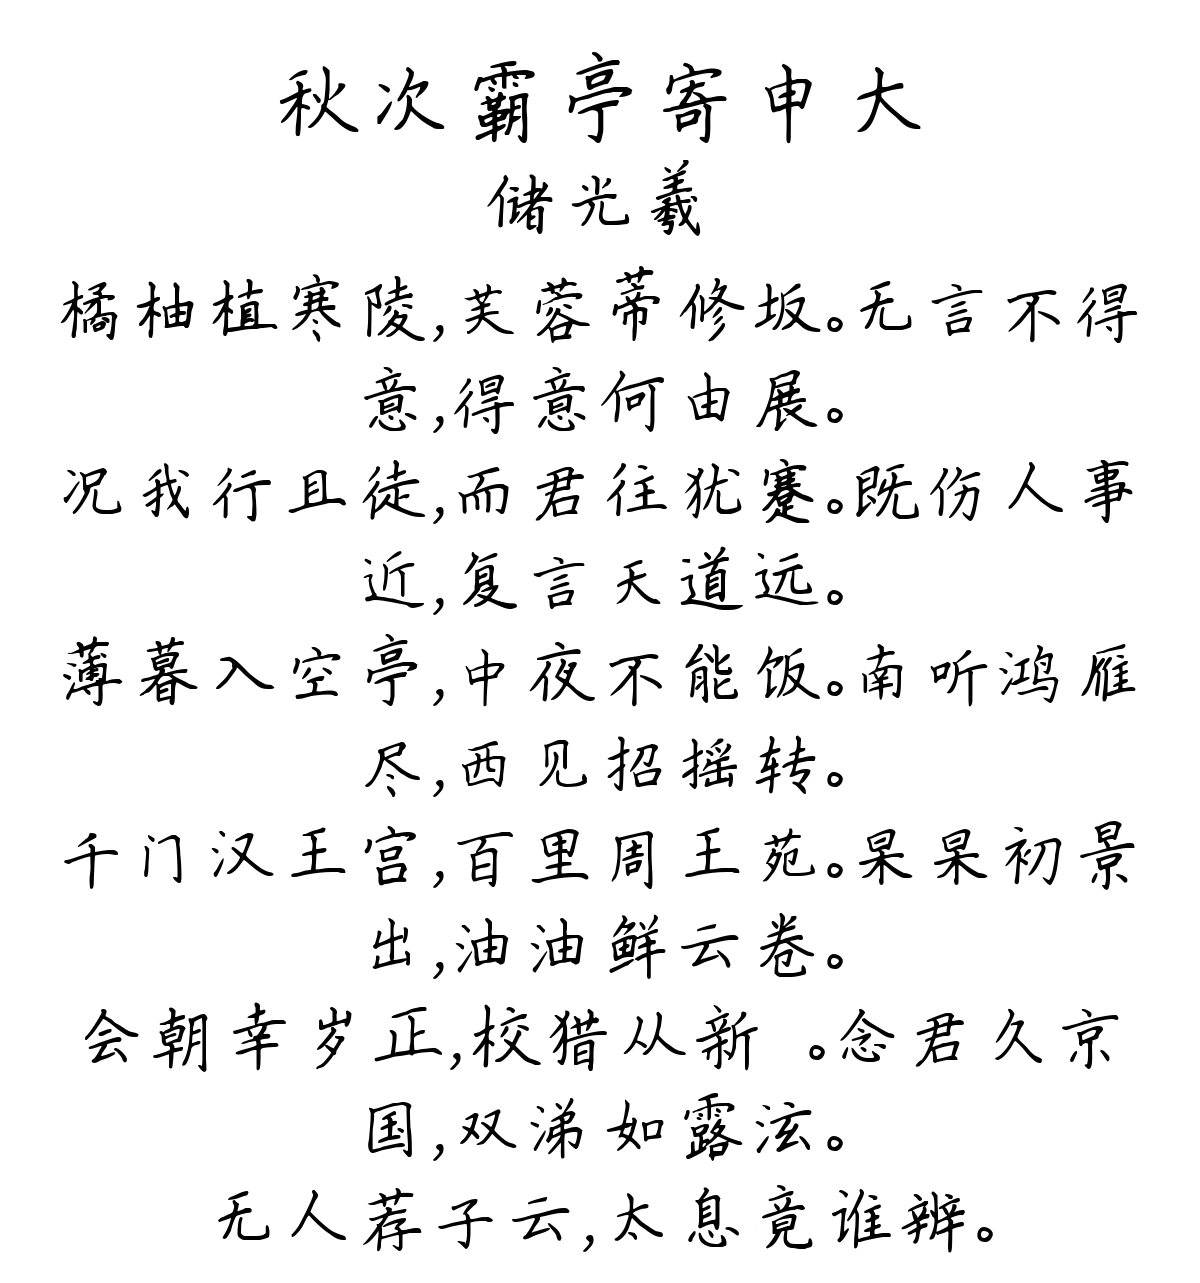 秋次霸亭寄申大
储光羲
橘柚植寒陵,芙蓉蒂修坂。无言不得
意,得意何由展。
况我行且徒,而君往犹蹇。既伤人事
近,复言天道远。
薄暮入空亭,中夜不能饭。南听鸿雁
尽,西见招摇转。
千门汉王宫,百里周王苑。杲杲初景
出,油油鲜云卷。
会朝幸岁正,校猎从新 。念君久京
国,双涕如露泫。
无人荐子云,太息竟谁辨。